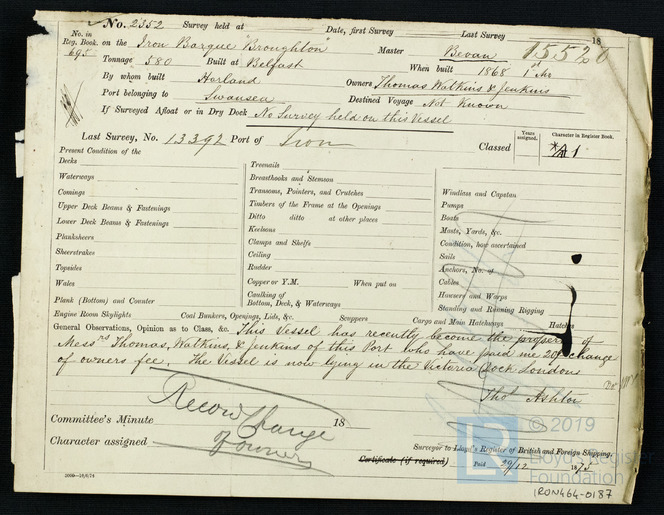 No. 2552 Survey held at Date, first Survey Last Survey 18
No. in Reg. Book. 695 on the Iron Barque "Broughton" Master Bevan
Tonnage 580 Built at Belfast When built 1868 1st Mo
By whom built Harland Owners Thomas Watkins & Jenkins
Port belonging to Swansea Destined Voyage Not Known
If Surveyed Afloat or in Dry Dock No Survey held on this Vessel
Last Survey, No. 13392 Port of Iron Classed Years assigned. Character in Register Book. A 1
Present Condition of the
Decks
Waterways
Comings
Upper Deck Beams & Fastenings
Lower Deck Beams & Fastenings
Planksheers
Sheerstrakes
Topsides
Wales
Plank (Bottom) and Counter
Treenails
Breasthooks and Stemson
Transoms, Pointers, and Crutches
Timbers of the Frame at the Openings
Ditto ditto at other places
Keelsons
Clamps and Shelfs
Ceiling
Rudder
Copper or Y.M. When put on
Caulking of Bottom, Deck, & Waterways
Windlass and Capstan
Pumps
Boats
Masts, Yards, &c.
Condition, how ascertained
Sails
Anchors, No. of
Cables
Hawsers and Warps
Standing and Running Rigging
Engine Room Skylights Coal Bunkers, Openings, Lids, &c. Scuppers Cargo and Main Hatchways Hatches
General Observations, Opinion as to Class, &c. This Vessel has recently become the property of
Messrs Thomas, Watkins, & Jenkins of this Port who have paid me 20/- change
of owners fee. The Vessel is now lying in the Victoria Dock London
Thos Ashton
Record Change
of owner
Committee's Minute 18
Character assigned
Surveyor to Lloyd's Register of British and Foreign Shipping.
Certificate (if required) Paid 29/12 1875
© 2019
Lloyd's Register
Foundation
IRON464-0187